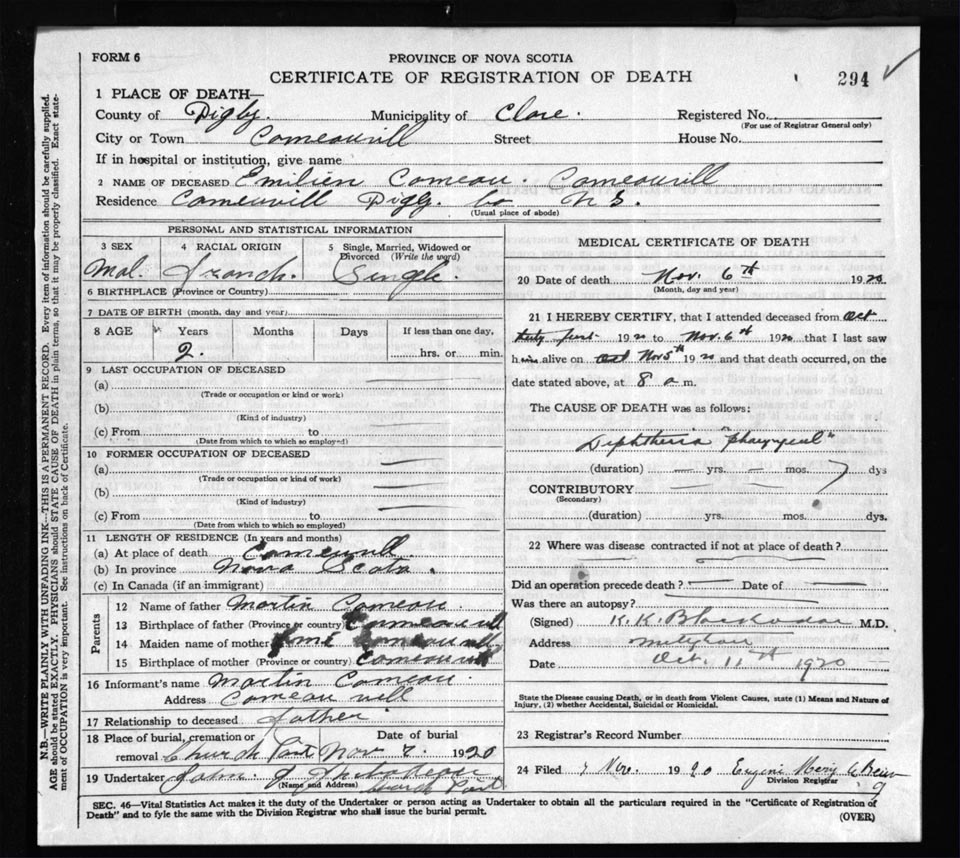 FORM 6
PROVINCE OF NOVA SCOTIA
CERTIFICATE OF REGISTRATION OF DEATH
294 ✓
1 PLACE OF DEATH—
County of Digby Municipality of Clare. Registered No.
(For use of Registrar General only)
City or Town Comeauvill Street House No.
If in hospital or institution, give name
2 NAME OF DECEASED Emilien Comeau. Comeauvill
Residence Comeuvill Digby. co N S.
(Usual place of abode)
PERSONAL AND STATISTICAL INFORMATION
3 SEX 4 RACIAL ORIGIN 5 Single, Married, Widowed or Divorced (Write the word)
Mal. franch. Single
6 BIRTHPLACE (Province or Country)
7 DATE OF BIRTH (month, day and year)
8 AGE Years Months Days If less than one day,
2. hrs. or min.
9 LAST OCCUPATION OF DECEASED
(a)
(Trade or occupation or kind or work)
(b)
(Kind of industry)
(c) From to
(Date from which to which so employed)
10 FORMER OCCUPATION OF DECEASED
(a)
(Trade or occupation or kind of work)
(b)
(Kind of industry)
(c) From to
(Date from which to which so employed)
11 LENGTH OF RESIDENCE (In years and months)
(a) At place of death Comeuvill
(b) In province Nova Scota.
(c) In Canada (if an immigrant)
Parents
12 Name of father Martin Comeau.
13 Birthplace of father (Province or country) Comeauvill
14 Maiden name of mother Comeauvill
15 Birthplace of mother (Province or country) Comeauvill
16 Informant's name Martin Comeau.
Address Comeauvill
17 Relationship to deceased father
18 Place of burial, cremation or removal Church Point Date of burial Nov 7. 1920
19 Undertaker John Church Point
(Name and Address)
MEDICAL CERTIFICATE OF DEATH
20 Date of death Nov. 6th 1920
(Month, day and year)
21 I HEREBY CERTIFY, that I attended deceased from Oct
1920 to Nov. 6th 1920 that I last saw
him alive on Oct Nov 5th 1920 and that death occurred, on the
date stated above, at 8 a m.
The CAUSE OF DEATH was as follows:
Diphtheria "pharyngeal"
(duration) — yrs. — mos. 7 dys
CONTRIBUTORY
(Secondary)
(duration) yrs. mos. dys.
22 Where was disease contracted if not at place of death?
Did an operation precede death? — Date of —
Was there an autopsy?
(Signed) K. K. Blackadar M.D.
Address Meteghan
Date Oct. 11th 1920
State the Disease causing Death, or in death from Violent Causes, state (1) Means and Nature of
Injury, (2) whether Accidental, Suicidal or Homicidal.
23 Registrar's Record Number
24 Filed 7 Nov. 1920 Eugenie Mary
Division Registrar
SEC. 46—Vital Statistics Act makes it the duty of the Undertaker or person acting as Undertaker to obtain all the particulars required in the "Certificate of Registration of
Death" and to fyle the same with the Division Registrar who shall issue the burial permit.
(OVER)
N.B.—WRITE PLAINLY WITH UNFADING INK—THIS IS A PERMANENT RECORD. Every item of information should be carefully supplied.
AGE should be stated EXACTLY. PHYSICIANS should STATE CAUSE OF DEATH in plain terms, so that it may be properly classified. Exact state-
ment of OCCUPATION is very important. See instructions on back of Certificate.